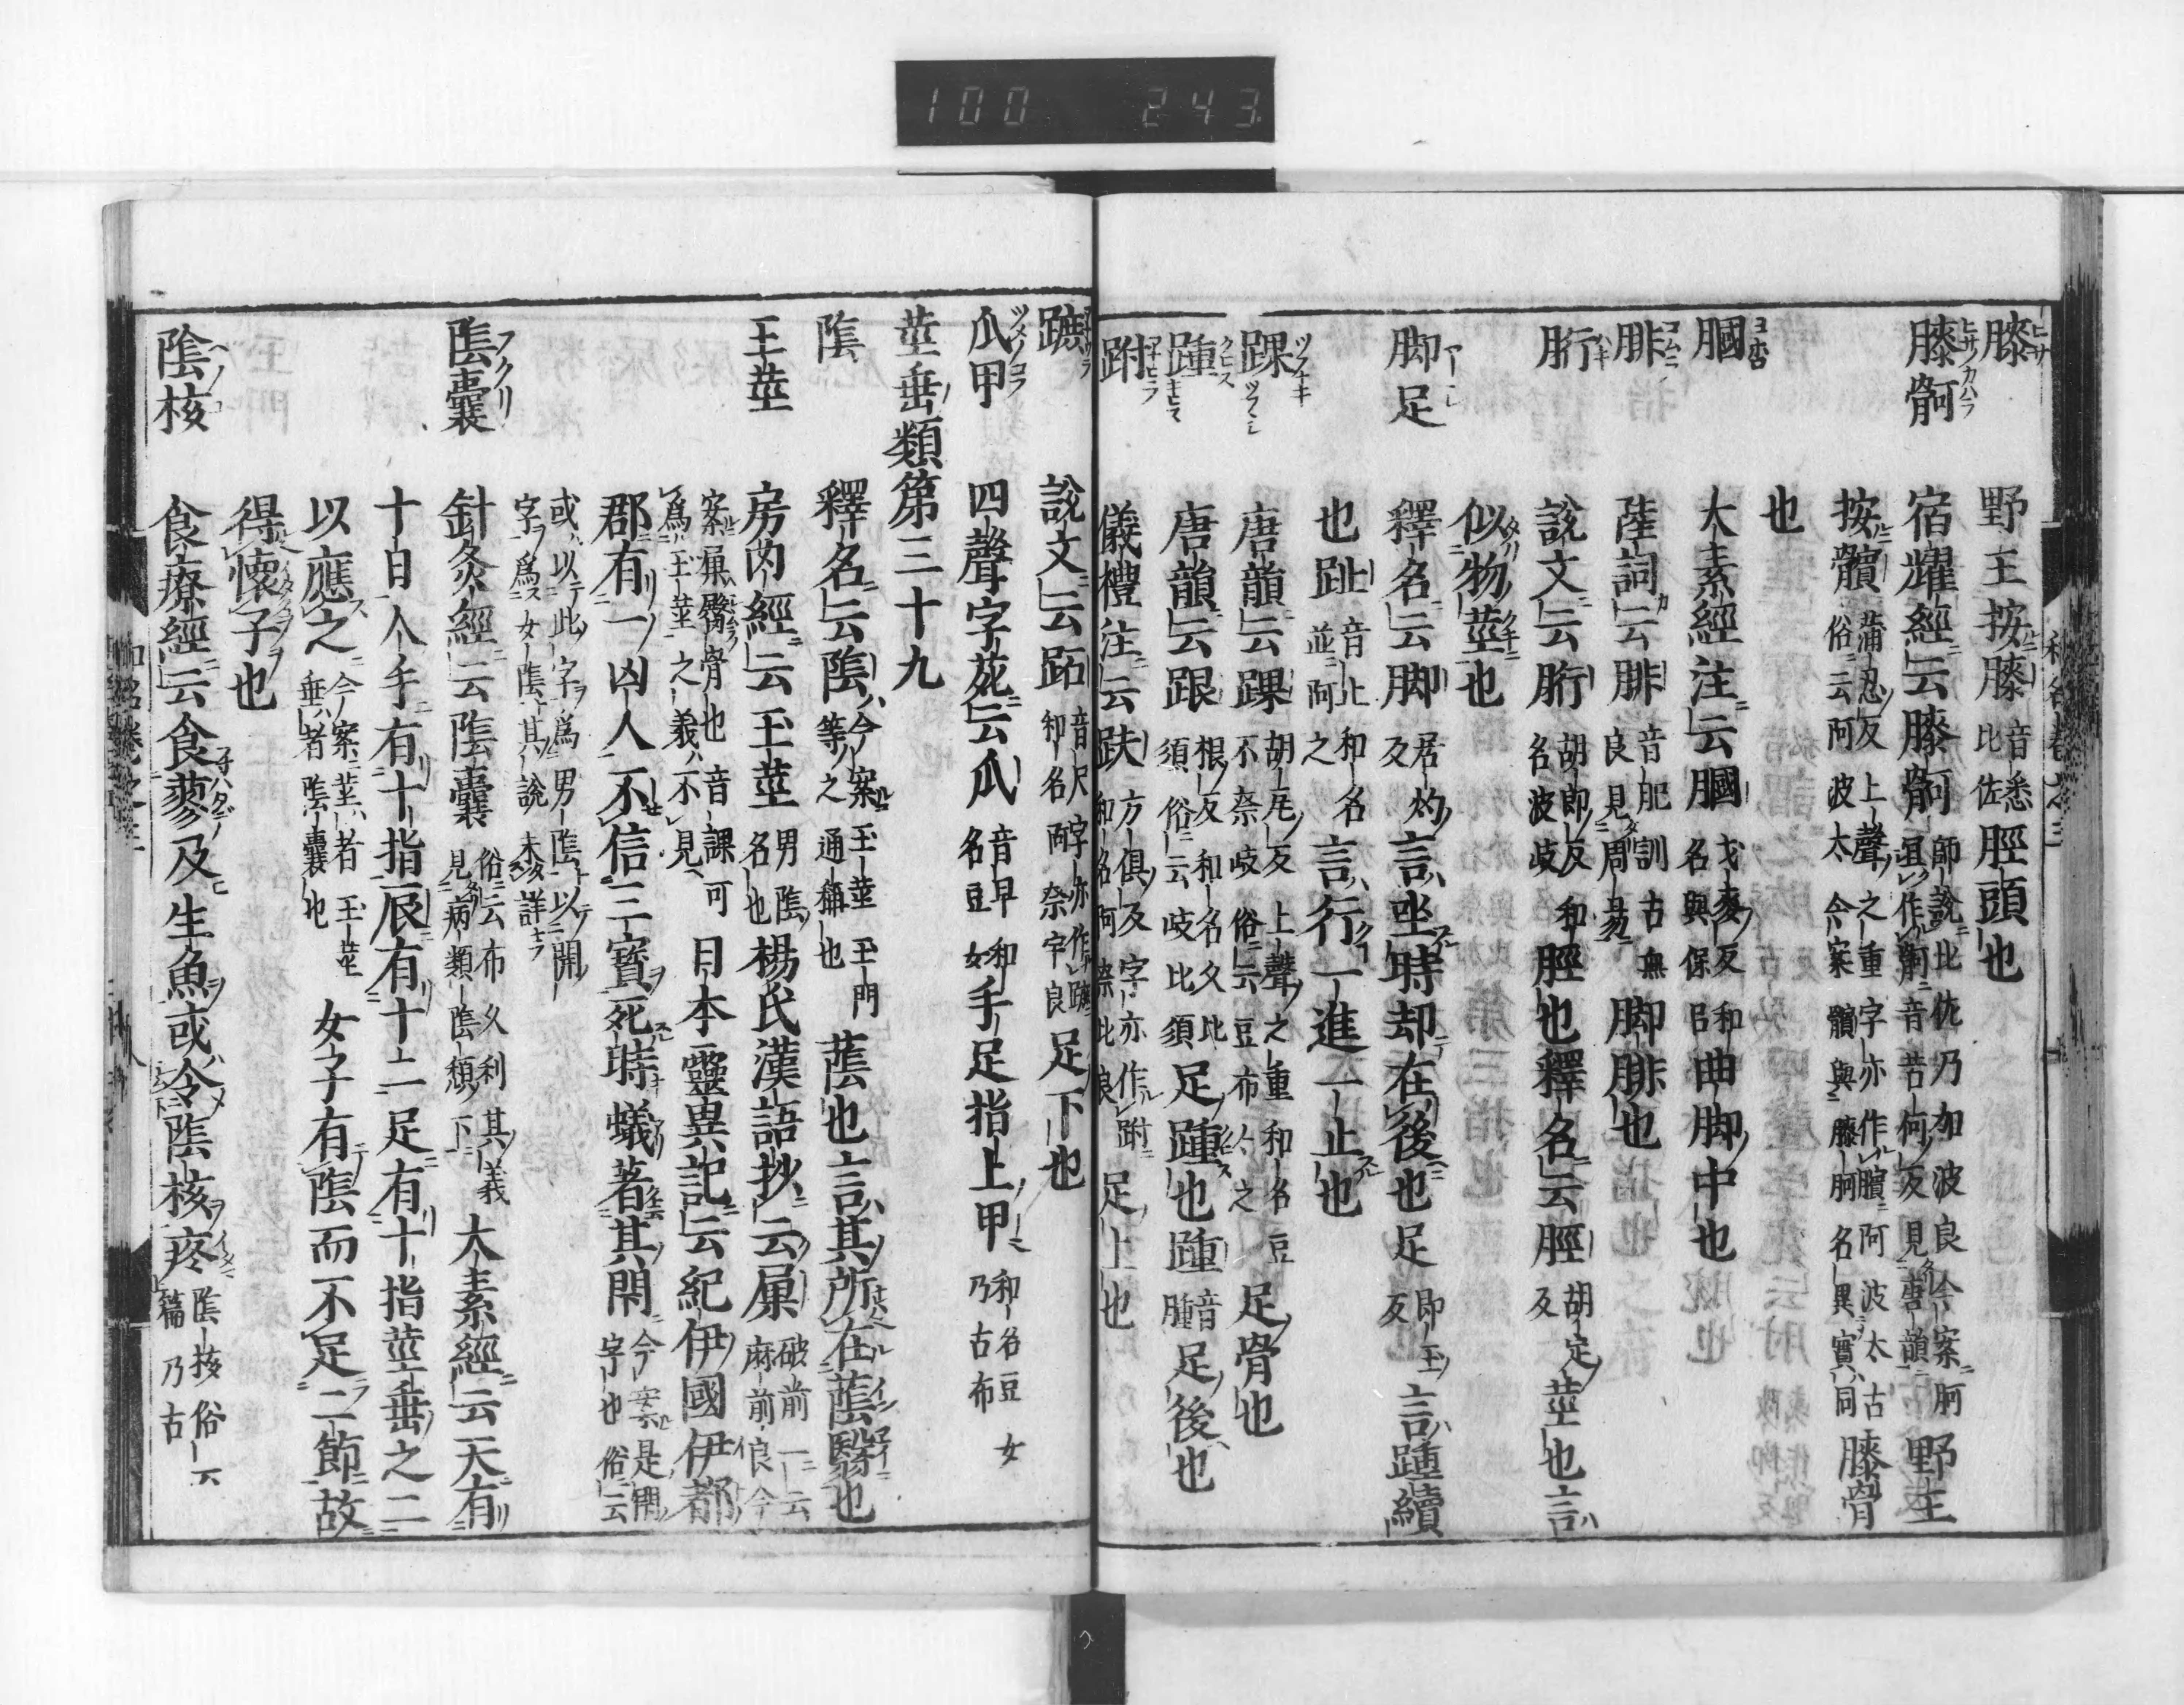 100 243
膝 野王按膝音悉比佐脛頭也
膝䯊 宿耀經云膝䯊師説比佐乃加波良今案䯊作䯊音苦何反見唐韻野王
按髕蒲忍反上聲之重字亦作臏阿波太古俗云阿波太今案髕與膝䯊名異實同膝骨
也
膕 大素經注云膕戈麥反和名與保呂曲脚中也
腓 陸詞云腓音肥訓古無良見周易脚腓也
胻 説文云胻胡郎反和名波岐脛也釋名云脛胡定反莖也言
似物莖也
脚足 釋名云脚居灼反言坐時却在後也足即玉反言踵續
也趾音止和名並阿之言行一進一止也
踝 唐韻云踝胡尾反上聲之重和名豆不奈岐俗云豆布々之足骨也
踵 唐韻云跟根反和名久比須俗云岐比須足踵也踵音腫足後也
跗 儀禮注云趺方倶反字亦作跗和名阿奈比良足上也
蹠 説文云跖音尺字亦作蹠和名阿奈宇良足下也
爪甲 四聲字苑云爪音早和名豆女手足指上甲和名豆女乃古布
莖垂類第三十九
陰 釋名云陰今案玉莖玉門等之通稱也蔭也言其所在蔭翳也
玉莖 房内經云玉莖男陰名也楊氏漢語抄云㞗破前一云麻前良今
案㞗臀骨也音課可爲玉莖之義不見日本靈異記云紀伊國伊都
郡有一凶人不信三寶死時蟻著其閇今案是閇字也俗云
或以此字爲男陰以開字爲女陰其説未詳
陰囊 針灸經云陰囊俗云布久利其義見病類陰頽下大素經云天有
十日人手有十指辰有十二足有十指莖垂之二
以應之今案莖者玉莖垂者陰囊也女子有陰而不足二節故
得懷子也
陰核 食療經云食蓼及生魚或令陰核疼陰核俗云篇乃古